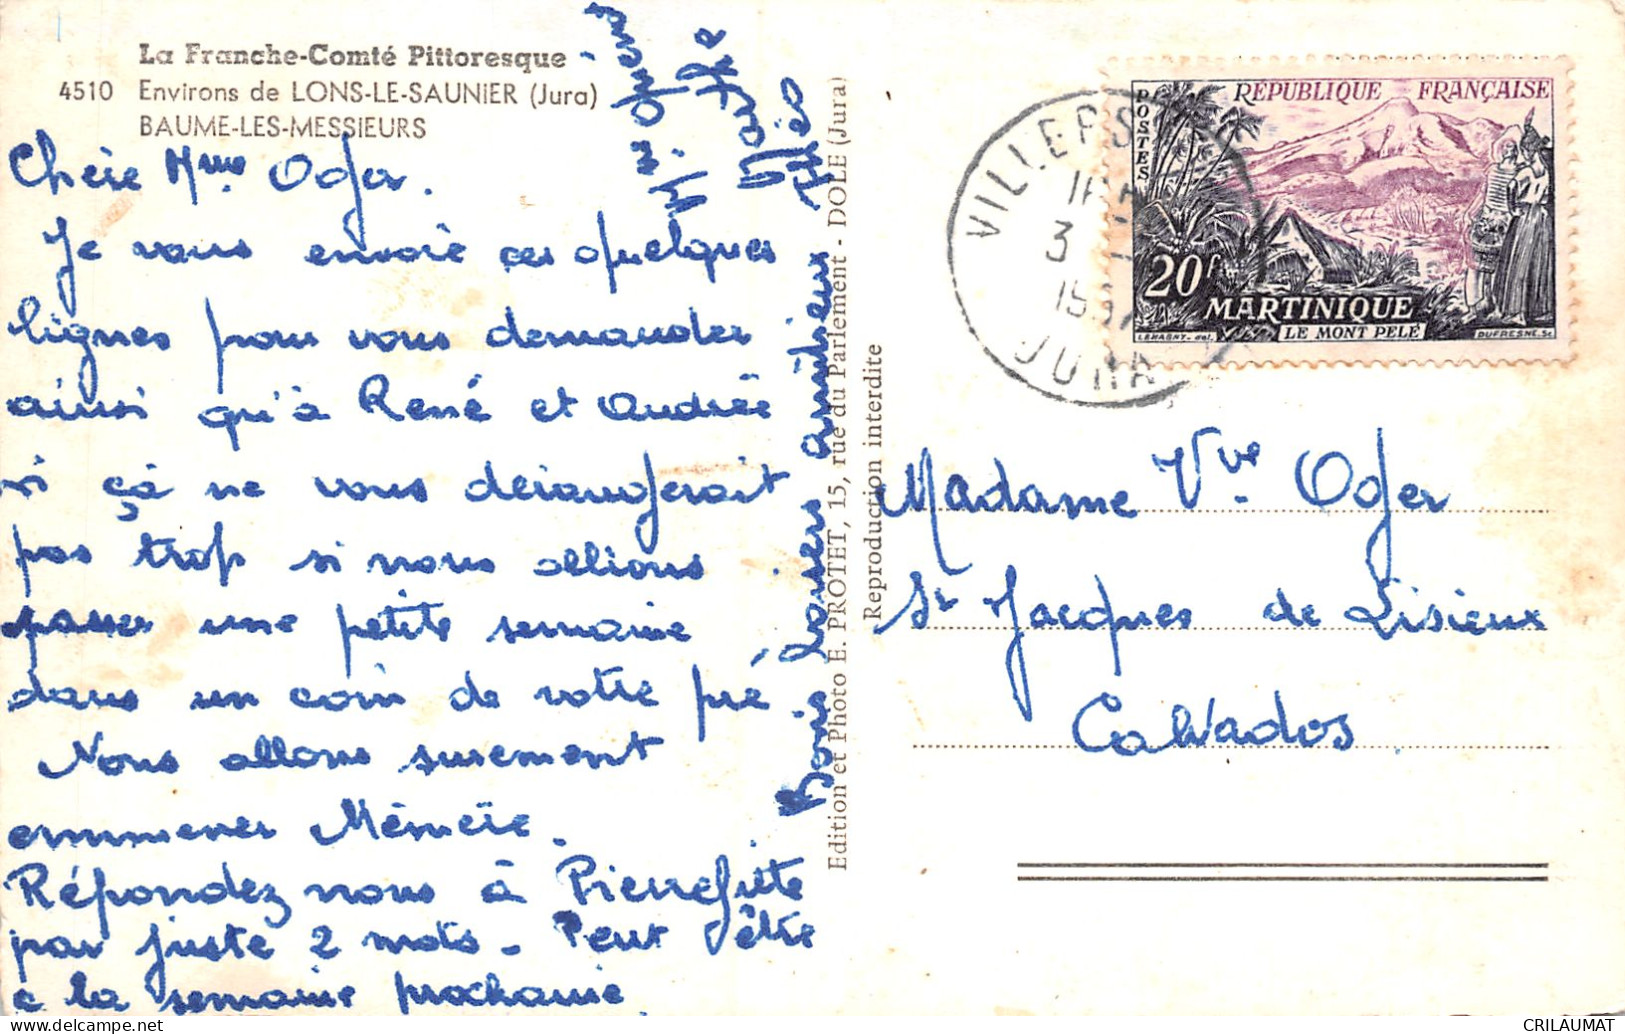 La Franche-Comté Pittoresque
4510 Environs de LONS-LE-SAUNIER (Jura)
BAUME-LES-MESSIEURS
Chère Mme Oger.
Je vous envoie ces quelques
lignes pour vous demander
ainsi qu'à René et Andrée
si çà ne vous dérangerait
pas trop si nous allions
passer une petite semaine
dans un coin de votre pré.
Nous allons surement
emmener Mémère.
Répondez nous à Pierrefitte
par juste 2 mots. Peut être
à la semaine prochaine
Bons baisers amitieux
Edition et Photo E. PROTET, 15, rue du Parlement - DOLE (Jura)
Reproduction interdite
VILLERS
3
JURA
RÉPUBLIQUE FRANÇAISE
POSTES
20f
MARTINIQUE
LE MONT PELÉ
DUFRESNE. Sc.
Madame Vve Oger
St Jacques de Lisieux
Calvados
CRILAUMAT